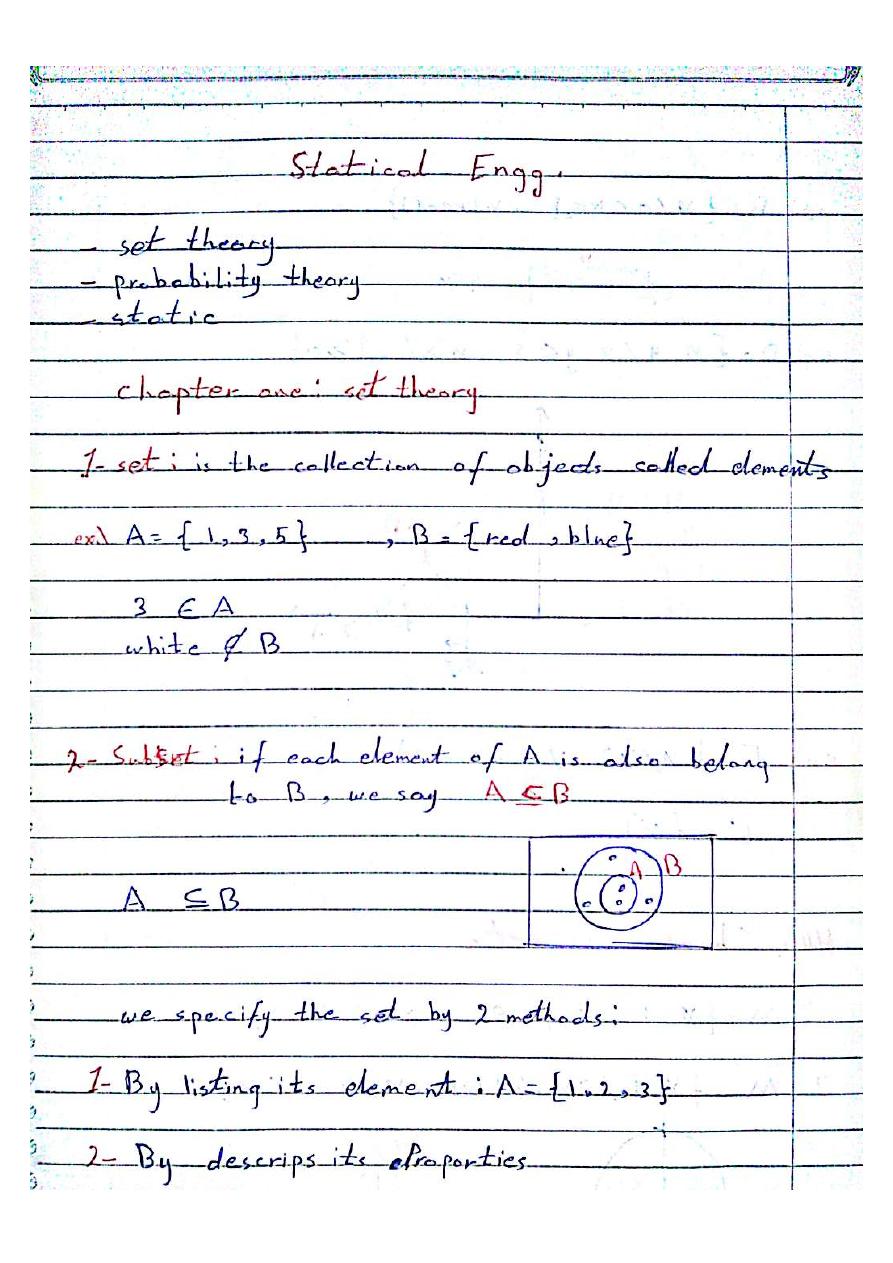 Statical Engg.
- set theory
- probability theory
- static
chapter one : set theory
1- set : is the collection of objects called elements
ex\ A = { 1, 3, 5 } , B = { red , blue }
3 ∈ A
white ∉ B
2- Subset : if each element of A is also belong
to B , we say A ⊆ B
A B
A ⊆ B
we specify the set by 2 methods :
1- By listing its element : A = { 1, 2, 3 }
2- By descrips its Proporties